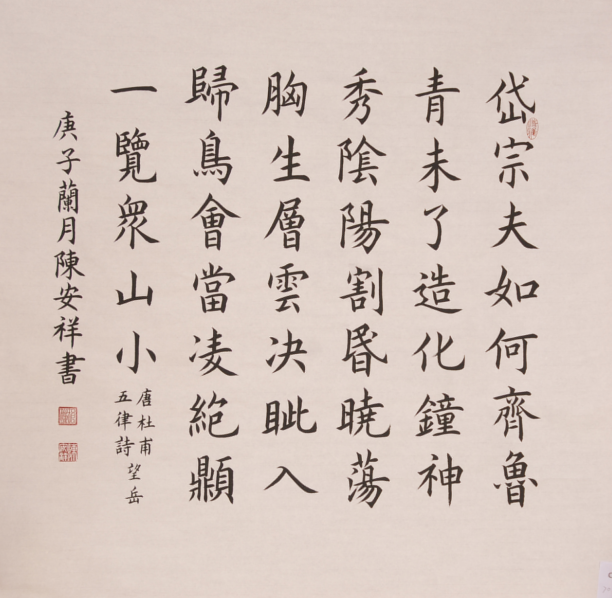 岱宗夫如何齊魯
青未了造化鐘神
秀陰陽割昏曉蕩
胸生層雲决眦入
歸鳥會當凌絕顥
一覽眾山小
唐杜甫
五律詩望岳
庚子蘭月陳安祥書